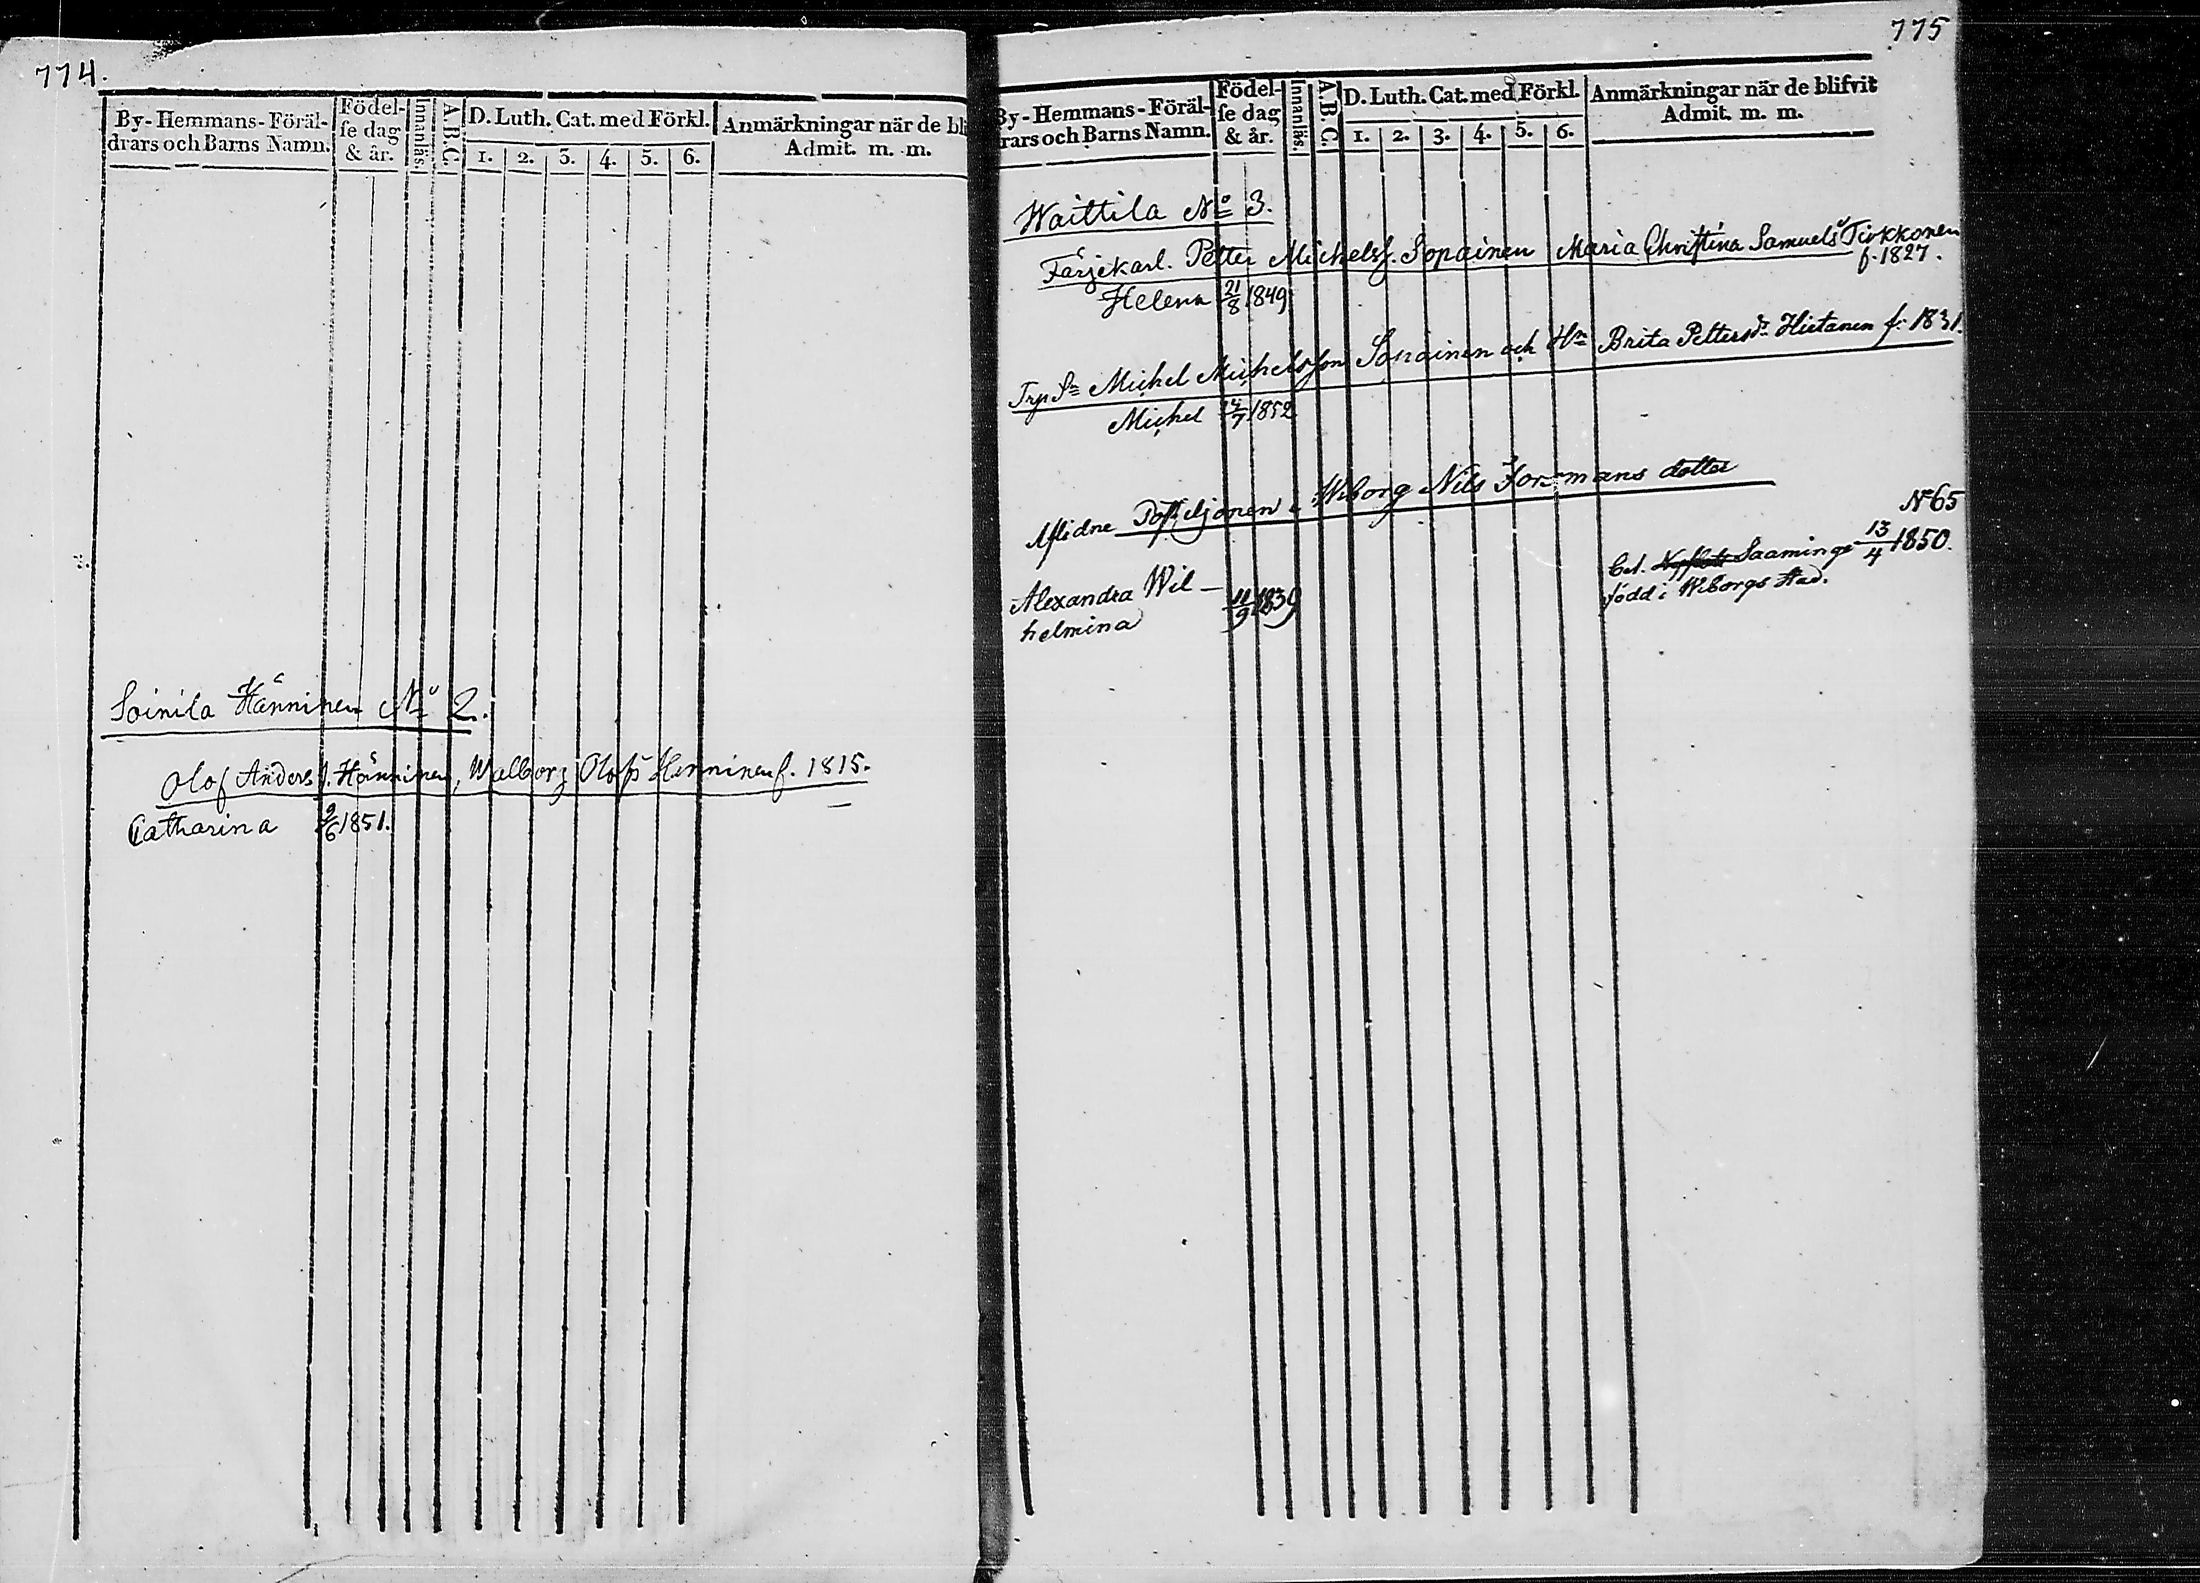 774.
By- Hemmans- Föräl-
drars och Barns Namn.
Födel-
se dag
& år.
Innanläs.
A.B.C.
D. Luth. Cat. med Förkl.
1. 2. 3. 4. 5. 6.
Anmärkningar när de bli
Admit. m. m.
Soinila Hänninen No 2.
Olof Anders s. Hänninen, Walborg Olofs Henninen f. 1815.
Catharina 9/6 1851.
775
By- Hemmans- Föräl-
rars och Barns Namn.
Födel-
se dag
& år.
Innanläs.
A.B.C.
D. Luth. Cat. med Förkl.
1. 2. 3. 4. 5. 6.
Anmärkningar när de blifvit
Admit. m. m.
Waittila No 3.
Färjekarl. Petter Michelss. Sopainen Maria Christina Samuelsd Tirkkonen
f. 1827.
Helena 21/8 1849
Trp Sn Michel Michelsson Sopainen och Hn Brita Pettersdr Hietanen f. 1831.
Michel 24/7 1852
Aflidne Postiljonen i Wiborg Nils Forsmans dotter
No 65
Alexandra Wil-
helmina 11/9 1839
Bet. Saaminge 13/4 1850.
född i Wiborgs stad.